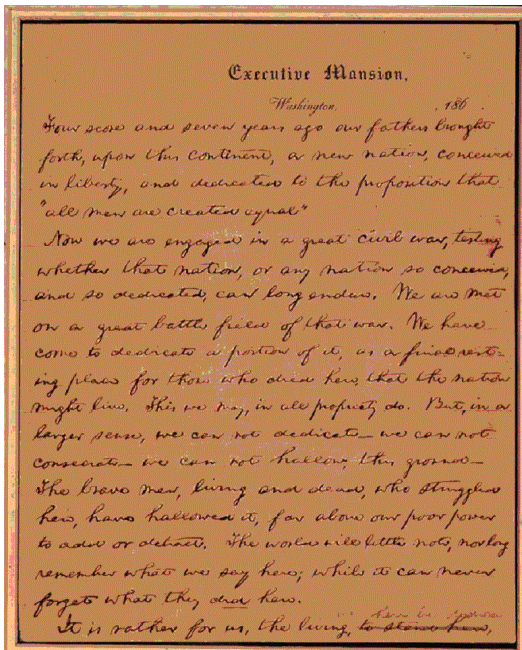 Executive Mansion,
Washington, , 186 .
Four score and seven years ago our fathers brought
forth, upon this continent, a new nation, conceived
in liberty, and dedicated to the proposition that
"all men are created equal"
Now we are engaged in a great civil war, testing
whether that nation, or any nation so conceived,
and so dedicated, can long endure. We are met
on a great battle field of that war. We have
come to dedicate a portion of it, as a final rest-
ing place for those who died here, that the nation
might live. This we may, in all propriety do. But, in a
larger sense, we can not dedicate — we can not
consecrate — we can not hallow, this ground —
The brave men, living and dead, who struggled
here, have hallowed it, far above our poor power
to add or detract. The world will little note, nor long
remember what we say here; while it can never
forget what they did here.
It is rather for us, the living, to stand here,